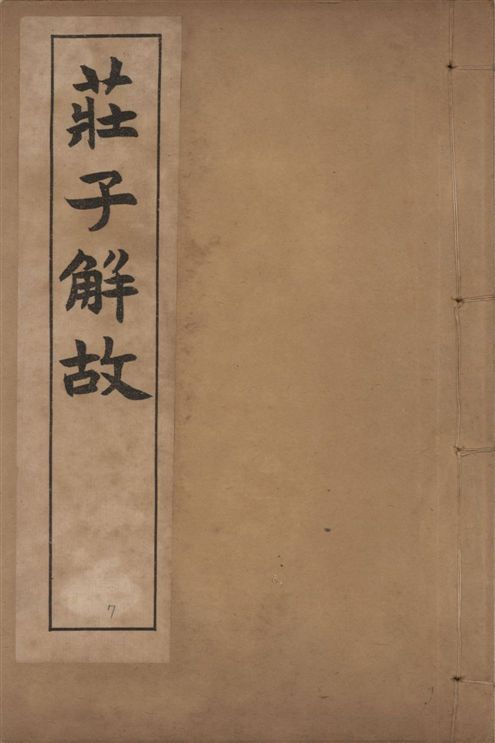 莊子解故
7